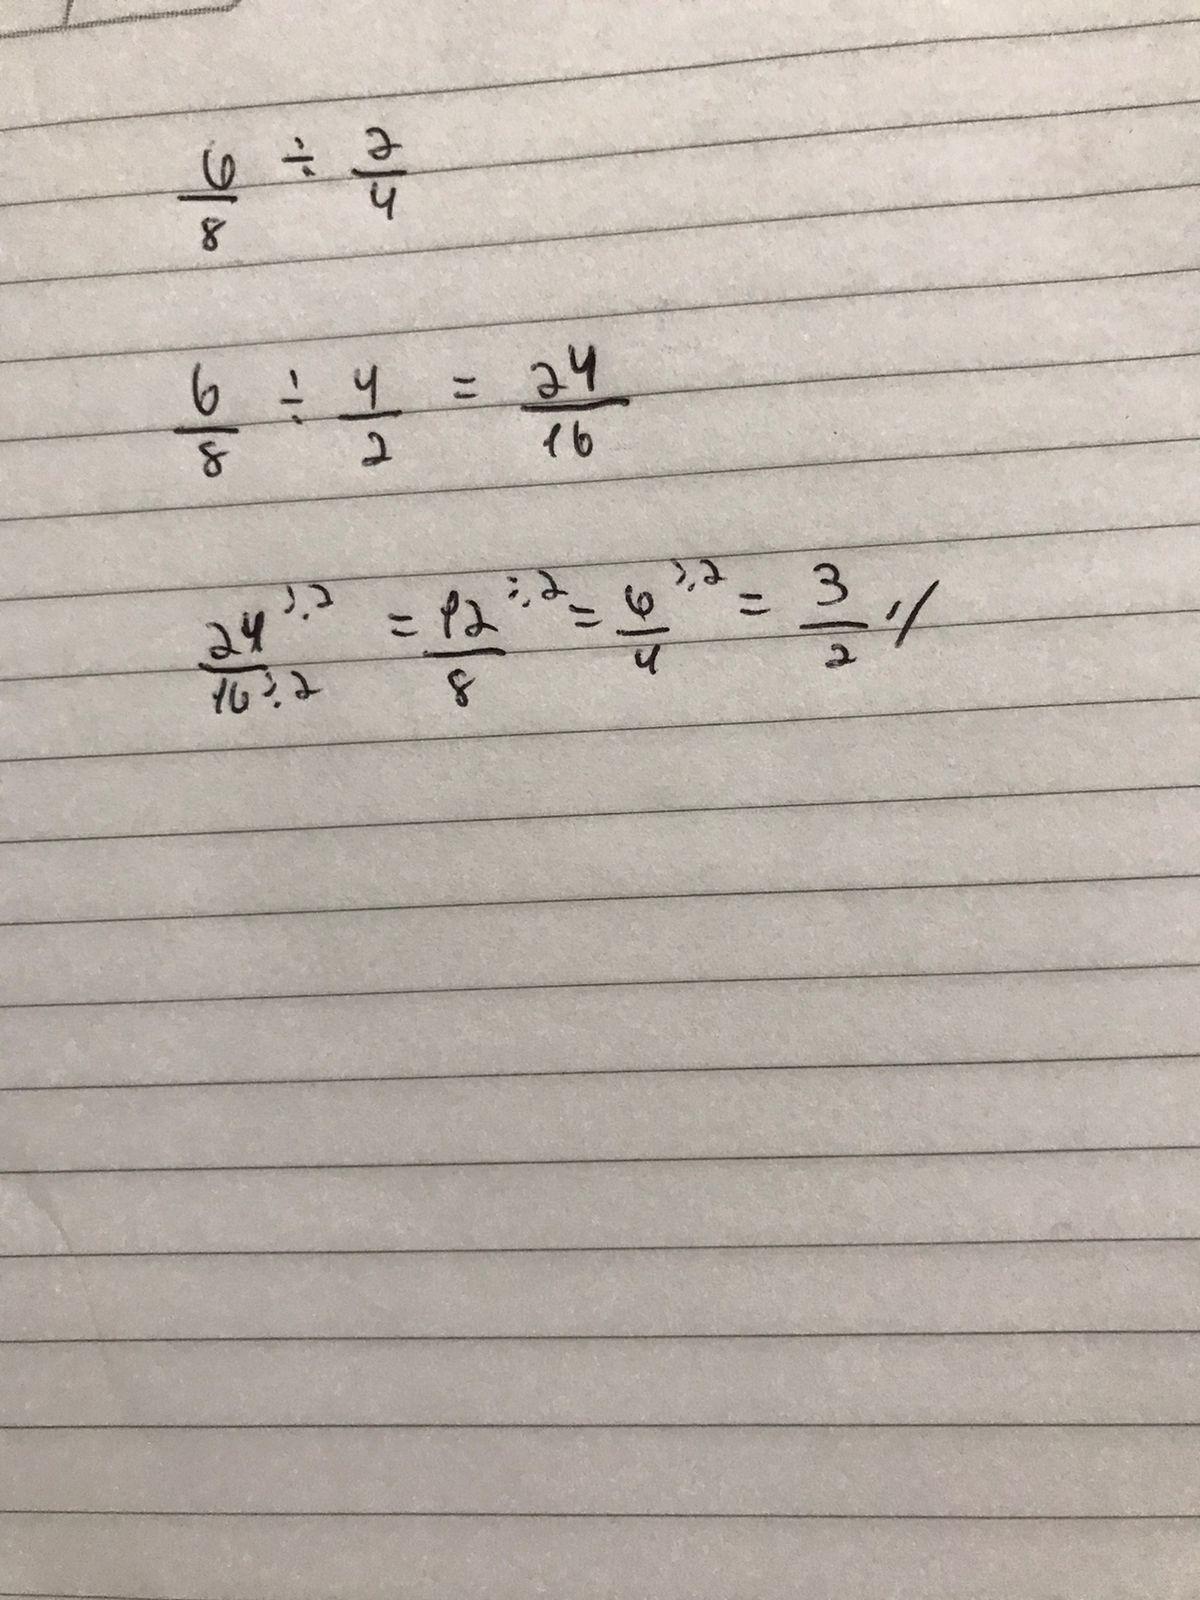 6/8 ÷ 2/4
6/8 ÷ 4/2 = 24/16
24÷2/16÷2 = 12÷2/8 = 6÷2/4 = 3/2 //